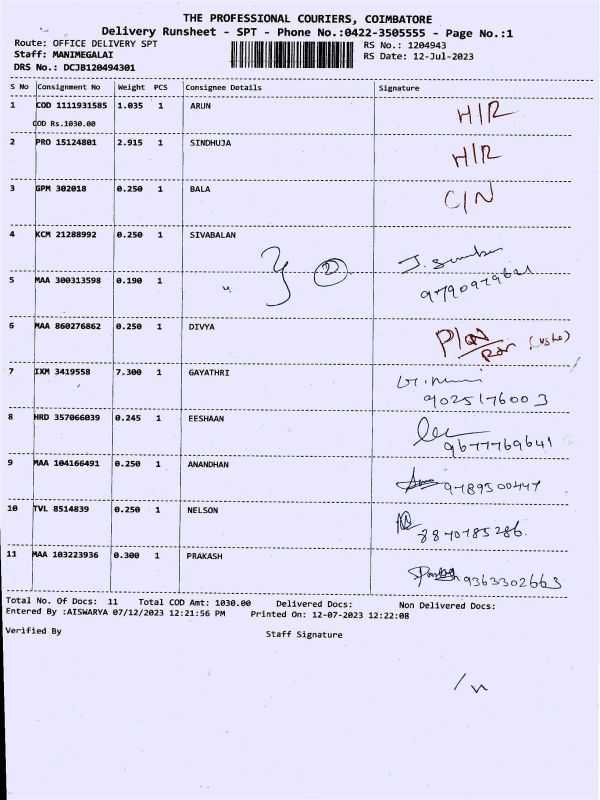 THE PROFESSIONAL COURIERS, COIMBATORE
Delivery Runsheet - SPT - Phone No.:0422-3505555 - Page No.:1
Route: OFFICE DELIVERY SPT RS No.: 1204943
Staff: MANIMEGALAI RS Date: 12-Jul-2023
DRS No.: DCJB120494301
S No Consignment No Weight PCS Consignee Details Signature
1 COD 1111931585 1.035 1 ARUN H/R
COD Rs.1030.00
2 PRO 15124801 2.915 1 SINDHUJA H/R
3 GPM 302018 0.250 1 BALA C/N
4 KCM 21288992 0.250 1 SIVABALAN
2
5 MAA 300313598 0.190 1 "
6 MAA 860276862 0.250 1 DIVYA
7 IXM 3419558 7.300 1 GAYATHRI
9025176003
8 HRD 357066039 0.245 1 EESHAAN
9677769641
9 MAA 104166491 0.250 1 ANANDHAN
9789500447
10 TVL 8514839 0.250 1 NELSON
8870785286
11 MAA 103223936 0.300 1 PRAKASH
9363302663
Total No. Of Docs: 11 Total COD Amt: 1030.00 Delivered Docs: Non Delivered Docs:
Entered By :AISWARYA 07/12/2023 12:21:56 PM Printed On: 12-07-2023 12:22:08
Verified By Staff Signature